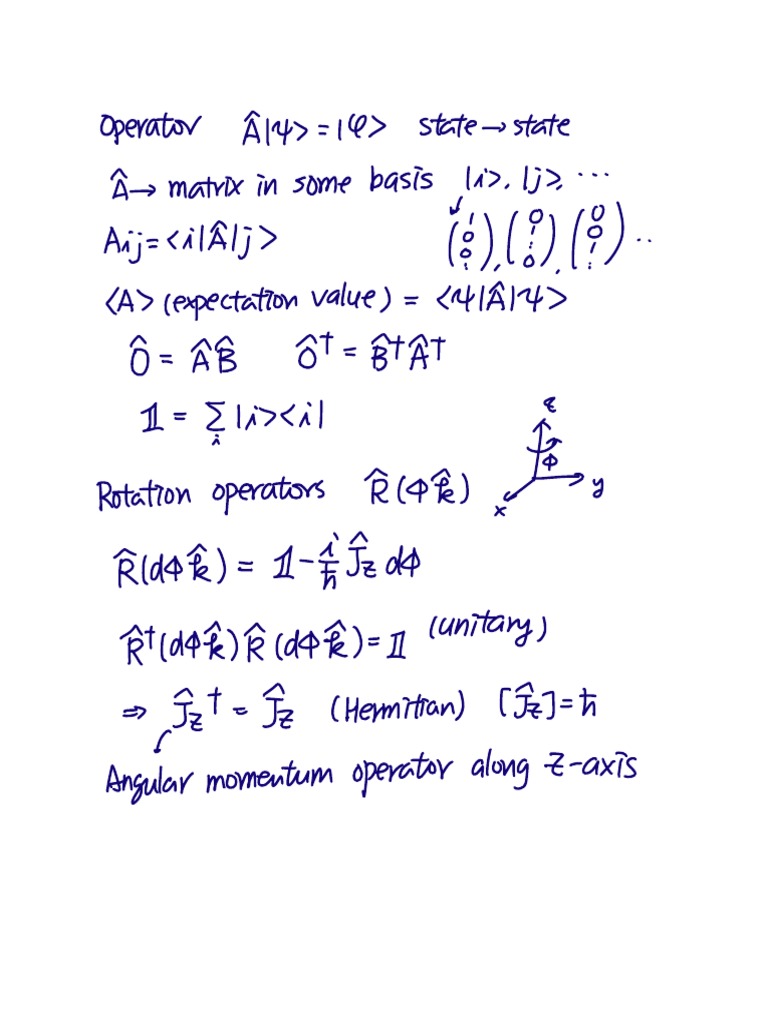 Operator Â|ψ> = |φ> state → state
Â → matrix in some basis |i>, |j>, ...
Aij = <i|Â|j> (1 0 0 ⋮), (0 1 ⋮ 0), (0 0 1 ⋮) ..
<A> (expectation value) = <ψ|Â|ψ>
Ô = ÂB̂ Ô† = B̂†Â†
𝟙 = Σi |i><i|
z
ϕ
y
x
Rotation operators R̂(ϕk̂)
R̂(dϕk̂) = 𝟙 - i/ħ Ĵz dϕ
R̂†(dϕk̂) R̂(dϕk̂) = 𝟙 (unitary)
⇒ Ĵz† = Ĵz (Hermitian) [Ĵz] = ħ
Angular momentum operator along z-axis